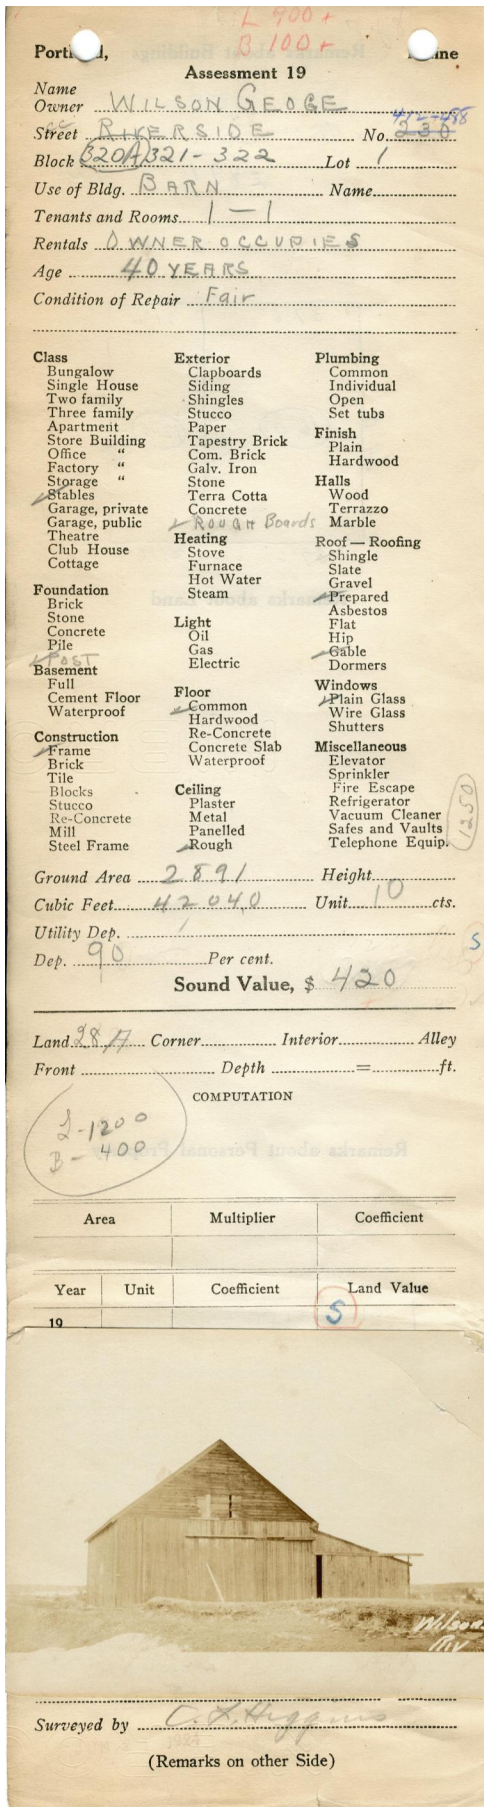 L 900 +
B 100 +
Portland, Maine
Assessment 19
Name
Owner WILSON GEOGE
412-488
Street RIVERSIDE No. 230
Block 320A 321-322 Lot 1
Use of Bldg. BARN Name
Tenants and Rooms 1 — 1
Rentals OWNER OCCUPIES
Age 40 YEARS
Condition of Repair Fair
Class
Bungalow
Single House
Two family
Three family
Apartment
Store Building
Office "
Factory "
Storage "
Stables
Garage, private
Garage, public
Theatre
Club House
Cottage
Foundation
Brick
Stone
Concrete
Pile
POST
Basement
Full
Cement Floor
Waterproof
Construction
Frame
Brick
Tile
Blocks
Stucco
Re-Concrete
Mill
Steel Frame
Exterior
Clapboards
Siding
Shingles
Stucco
Paper
Tapestry Brick
Com. Brick
Galv. Iron
Stone
Terra Cotta
Concrete
ROUGH Boards
Heating
Stove
Furnace
Hot Water
Steam
Light
Oil
Gas
Electric
Floor
Common
Hardwood
Re-Concrete
Concrete Slab
Waterproof
Ceiling
Plaster
Metal
Panelled
Rough
Plumbing
Common
Individual
Open
Set tubs
Finish
Plain
Hardwood
Halls
Wood
Terrazzo
Marble
Roof — Roofing
Shingle
Slate
Gravel
Prepared
Asbestos
Flat
Hip
Gable
Dormers
Windows
Plain Glass
Wire Glass
Shutters
Miscellaneous
Elevator
Sprinkler
Fire Escape
Refrigerator
Vacuum Cleaner
Safes and Vaults
Telephone Equip.
1250
Ground Area 2891 Height
Cubic Feet 42040 Unit 10 cts.
Utility Dep.
S
Dep. 90 Per cent.
Sound Value, $ 420
Land 28 A Corner Interior Alley
Front Depth = ft.
COMPUTATION
L-1200
B-400
Area Multiplier Coefficient
Year Unit Coefficient Land Value
19 S
Wilson
Riv
Surveyed by C. L. Higgins
(Remarks on other Side)